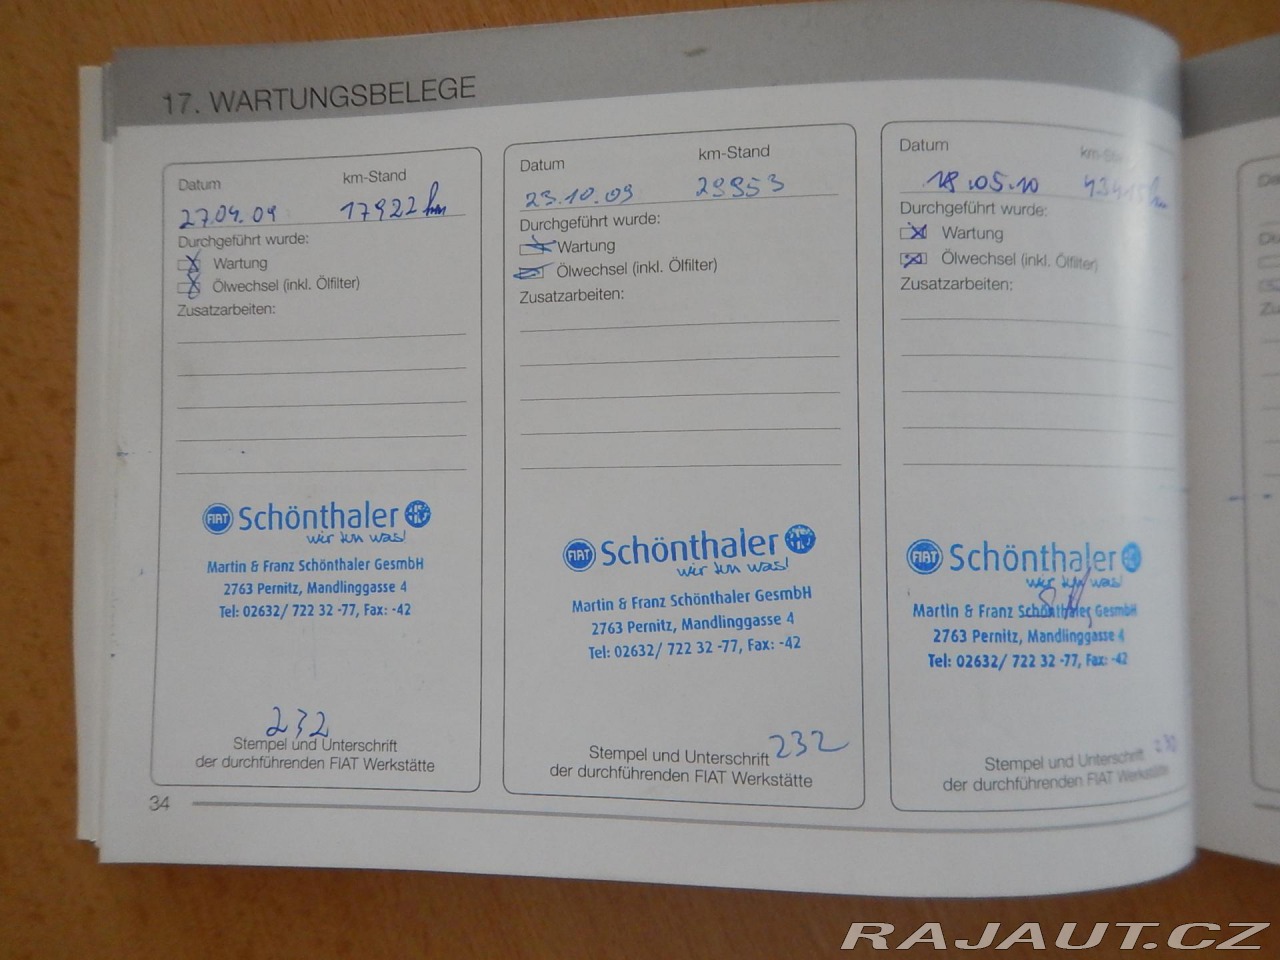 17. WARTUNGSBELEGE
Datum km-Stand
27.04.09 17922 km
Durchgeführt wurde:
Wartung
Ölwechsel (inkl. Ölfilter)
Zusatzarbeiten:
FIAT Schönthaler
wir tun was!
Martin & Franz Schönthaler GesmbH
2763 Pernitz, Mandlinggasse 4
Tel: 02632/ 722 32 -77, Fax: -42
232
Stempel und Unterschrift
der durchführenden FIAT Werkstätte
34
Datum km-Stand
23.10.09 29953
Durchgeführt wurde:
Wartung
Ölwechsel (inkl. Ölfilter)
Zusatzarbeiten:
FIAT Schönthaler
wir tun was!
Martin & Franz Schönthaler GesmbH
2763 Pernitz, Mandlinggasse 4
Tel: 02632/ 722 32 -77, Fax: -42
232
Stempel und Unterschrift
der durchführenden FIAT Werkstätte
Datum km-Stand
18.05.10
Durchgeführt wurde:
Wartung
Ölwechsel (inkl. Ölfilter)
Zusatzarbeiten:
FIAT Schönthaler
wir tun was!
Martin & Franz Schönthaler GesmbH
2763 Pernitz, Mandlinggasse 4
Tel: 02632/ 722 32 -77, Fax: -42
Stempel und Unterschrift
der durchführenden FIAT Werkstätte
RAJAUT.CZ